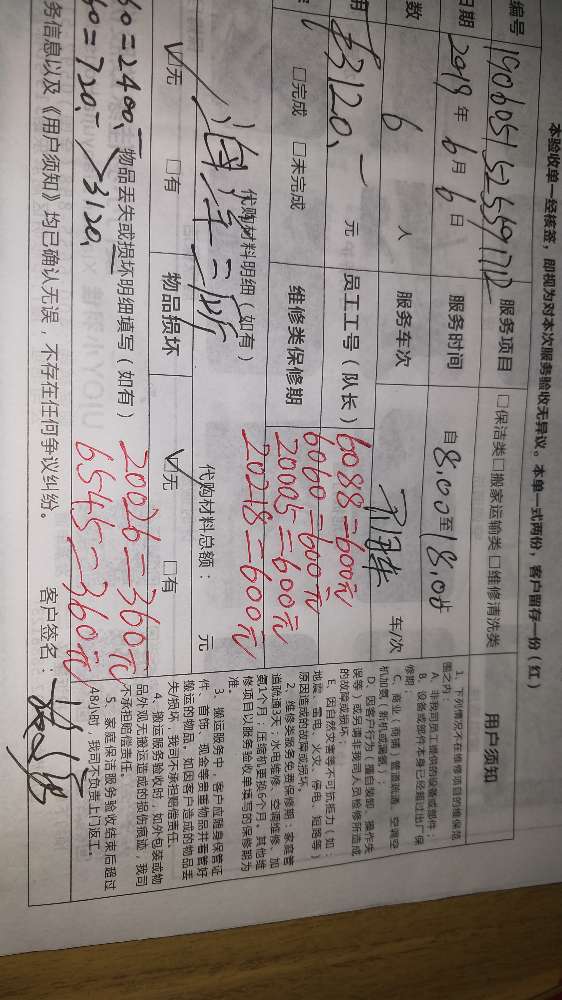 本验收单一经核签，即视为对本次服务验收无异议。本单一式两份，客户留存一份（红）
编号 服务项目 □保洁类□搬家运输类□维修清洗类 用户须知
日期 2019年6月6日 服务时间 自8:00至18:00止
数 6 人 服务车次 车/次
用 3120,- 元 员工工号（队长） 6088=600元
6060=600元
□完成 □未完成 维修类保修期 20005=600元
代购材料明细（如有） 20218=600元
代购材料总额： 元
☑无 □有 物品损坏 ☑无 □有
60=2400,- 物品丢失或损坏明细填写（如有） 20026=360元
60=720,- 3120, 6545=360元
务信息以及《用户须知》均已确认无误，不存在任何争议纠纷。 客户签名：
1、下列情况不在维修项目的维保范
围之内：
A、非我司员工提供的设备或部件；
B、设备或部件本身已经超过出厂保
修期；
C、商业（商铺）管道疏通、空调空
机加氟（新机或漏氟）；
D、因客户行为（擅自装卸、操作失
误等）或另请非我司人员检修所造成
的故障或损坏；
E、因自然灾害等不可抗拒力（如：
地震、雷电、火灾、停电、短路等）
原因造成的故障或损坏。
2、维修类服务免费保修期：家庭管
道疏通3天；水电维修、空调维修、加
氟1个月；压缩机更换6个月。其他维
修项目以服务验收单填写的保修期为
准。
3、搬运服务中，客户应随身保管证
件、首饰、现金等贵重物品并看管好
搬运的物品。如因客户造成的物品丢
失/损坏，我司不承担赔偿责任。
4、搬运服务验收时，如外包装或物
品外观无搬运造成的损伤痕迹，我司
不承担赔偿责任。
5、家庭保洁服务验收结束后超过
48小时，我司不负责上门返工。